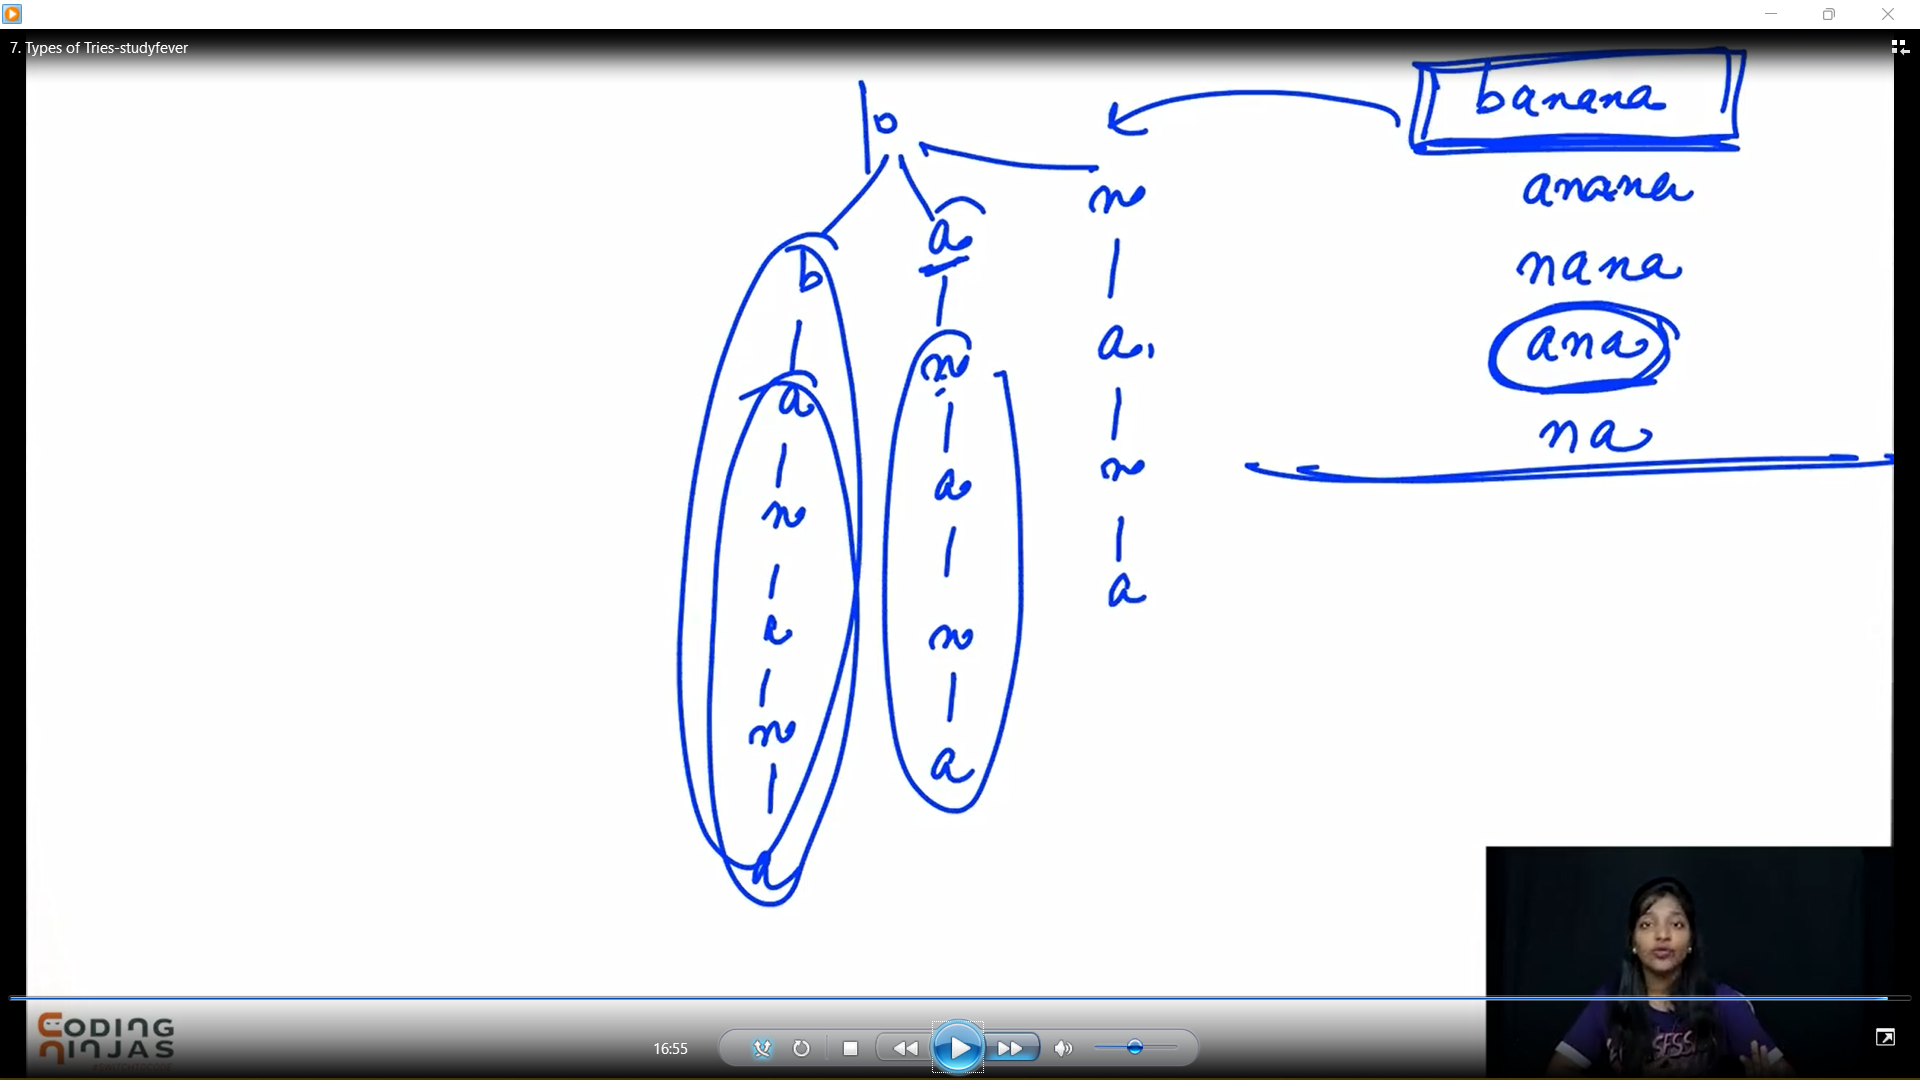 7. Types of Tries-studyfever
banana
anana
nana
ana
na
o
b
a
n
a
n
a
a
n
a
n
a
n
a
n
a
CODING
NINJAS
16:55